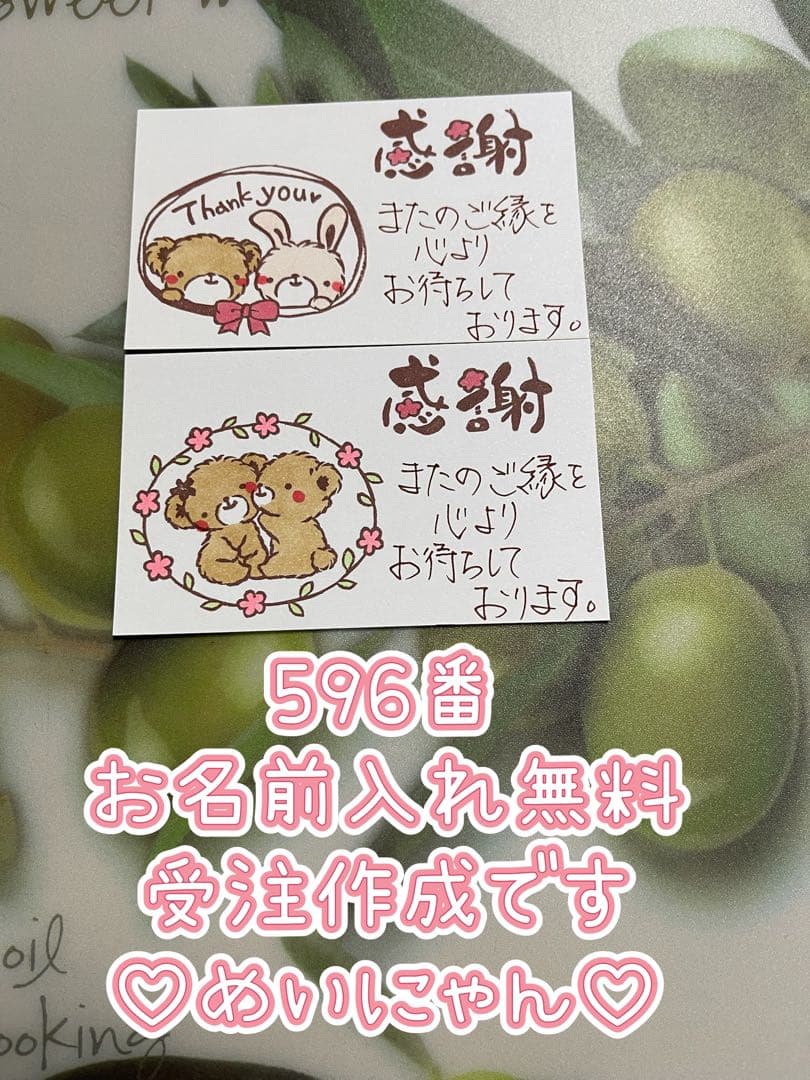 感謝
Thank you♥
またのご縁を
心より
お待ちして
おります。
感謝
またのご縁を
心より
お待ちして
おります。
596番
お名前入れ無料
受注作成です
♡めいにゃん♡
oil